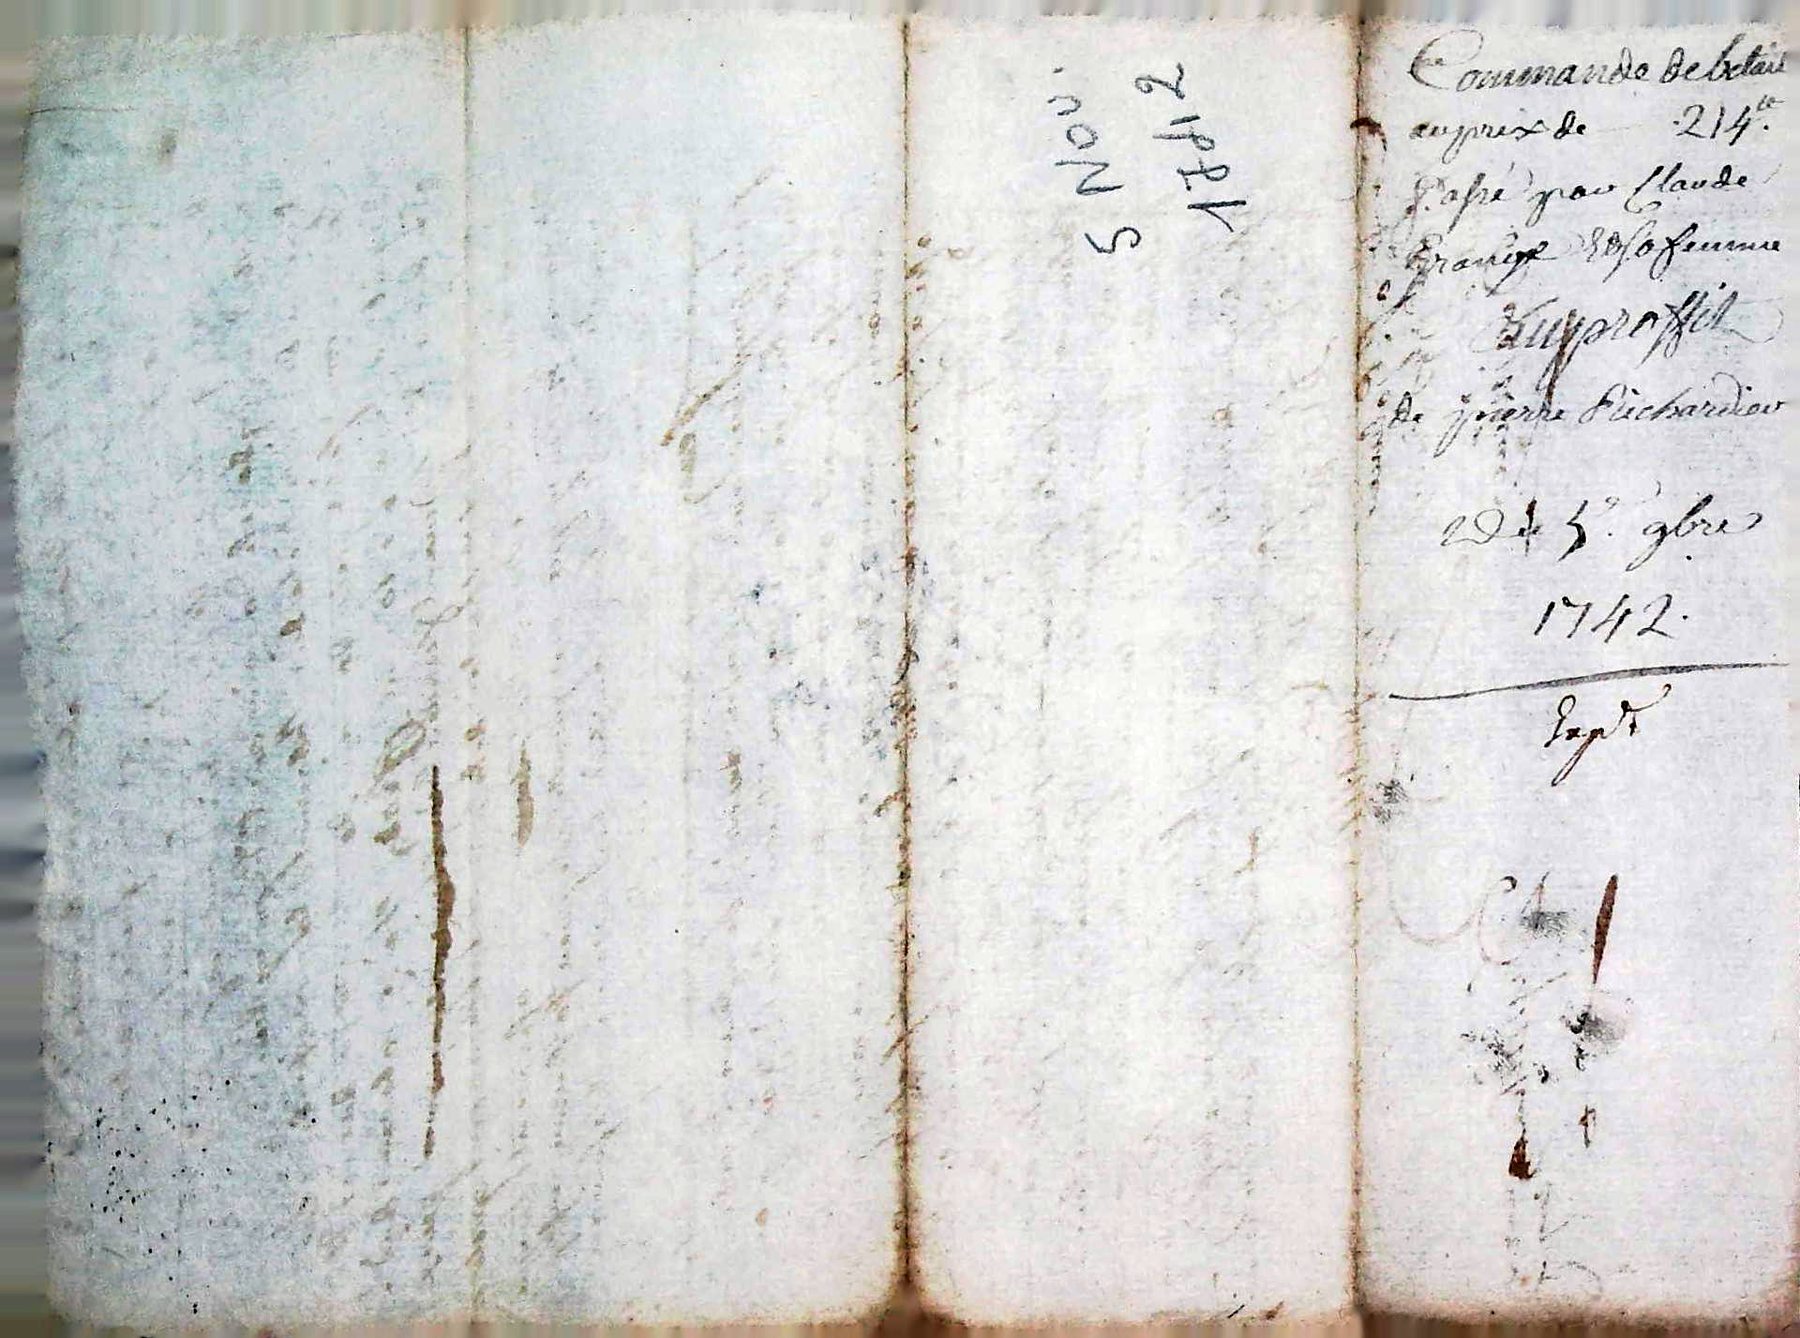 5 Nov.
1742
Commande de betail
au prix de 214.tt
Passé par Claude
et sa femme
Au proffit
de pierre Richardier
Du 5e. 9bre
1742.
Expdt